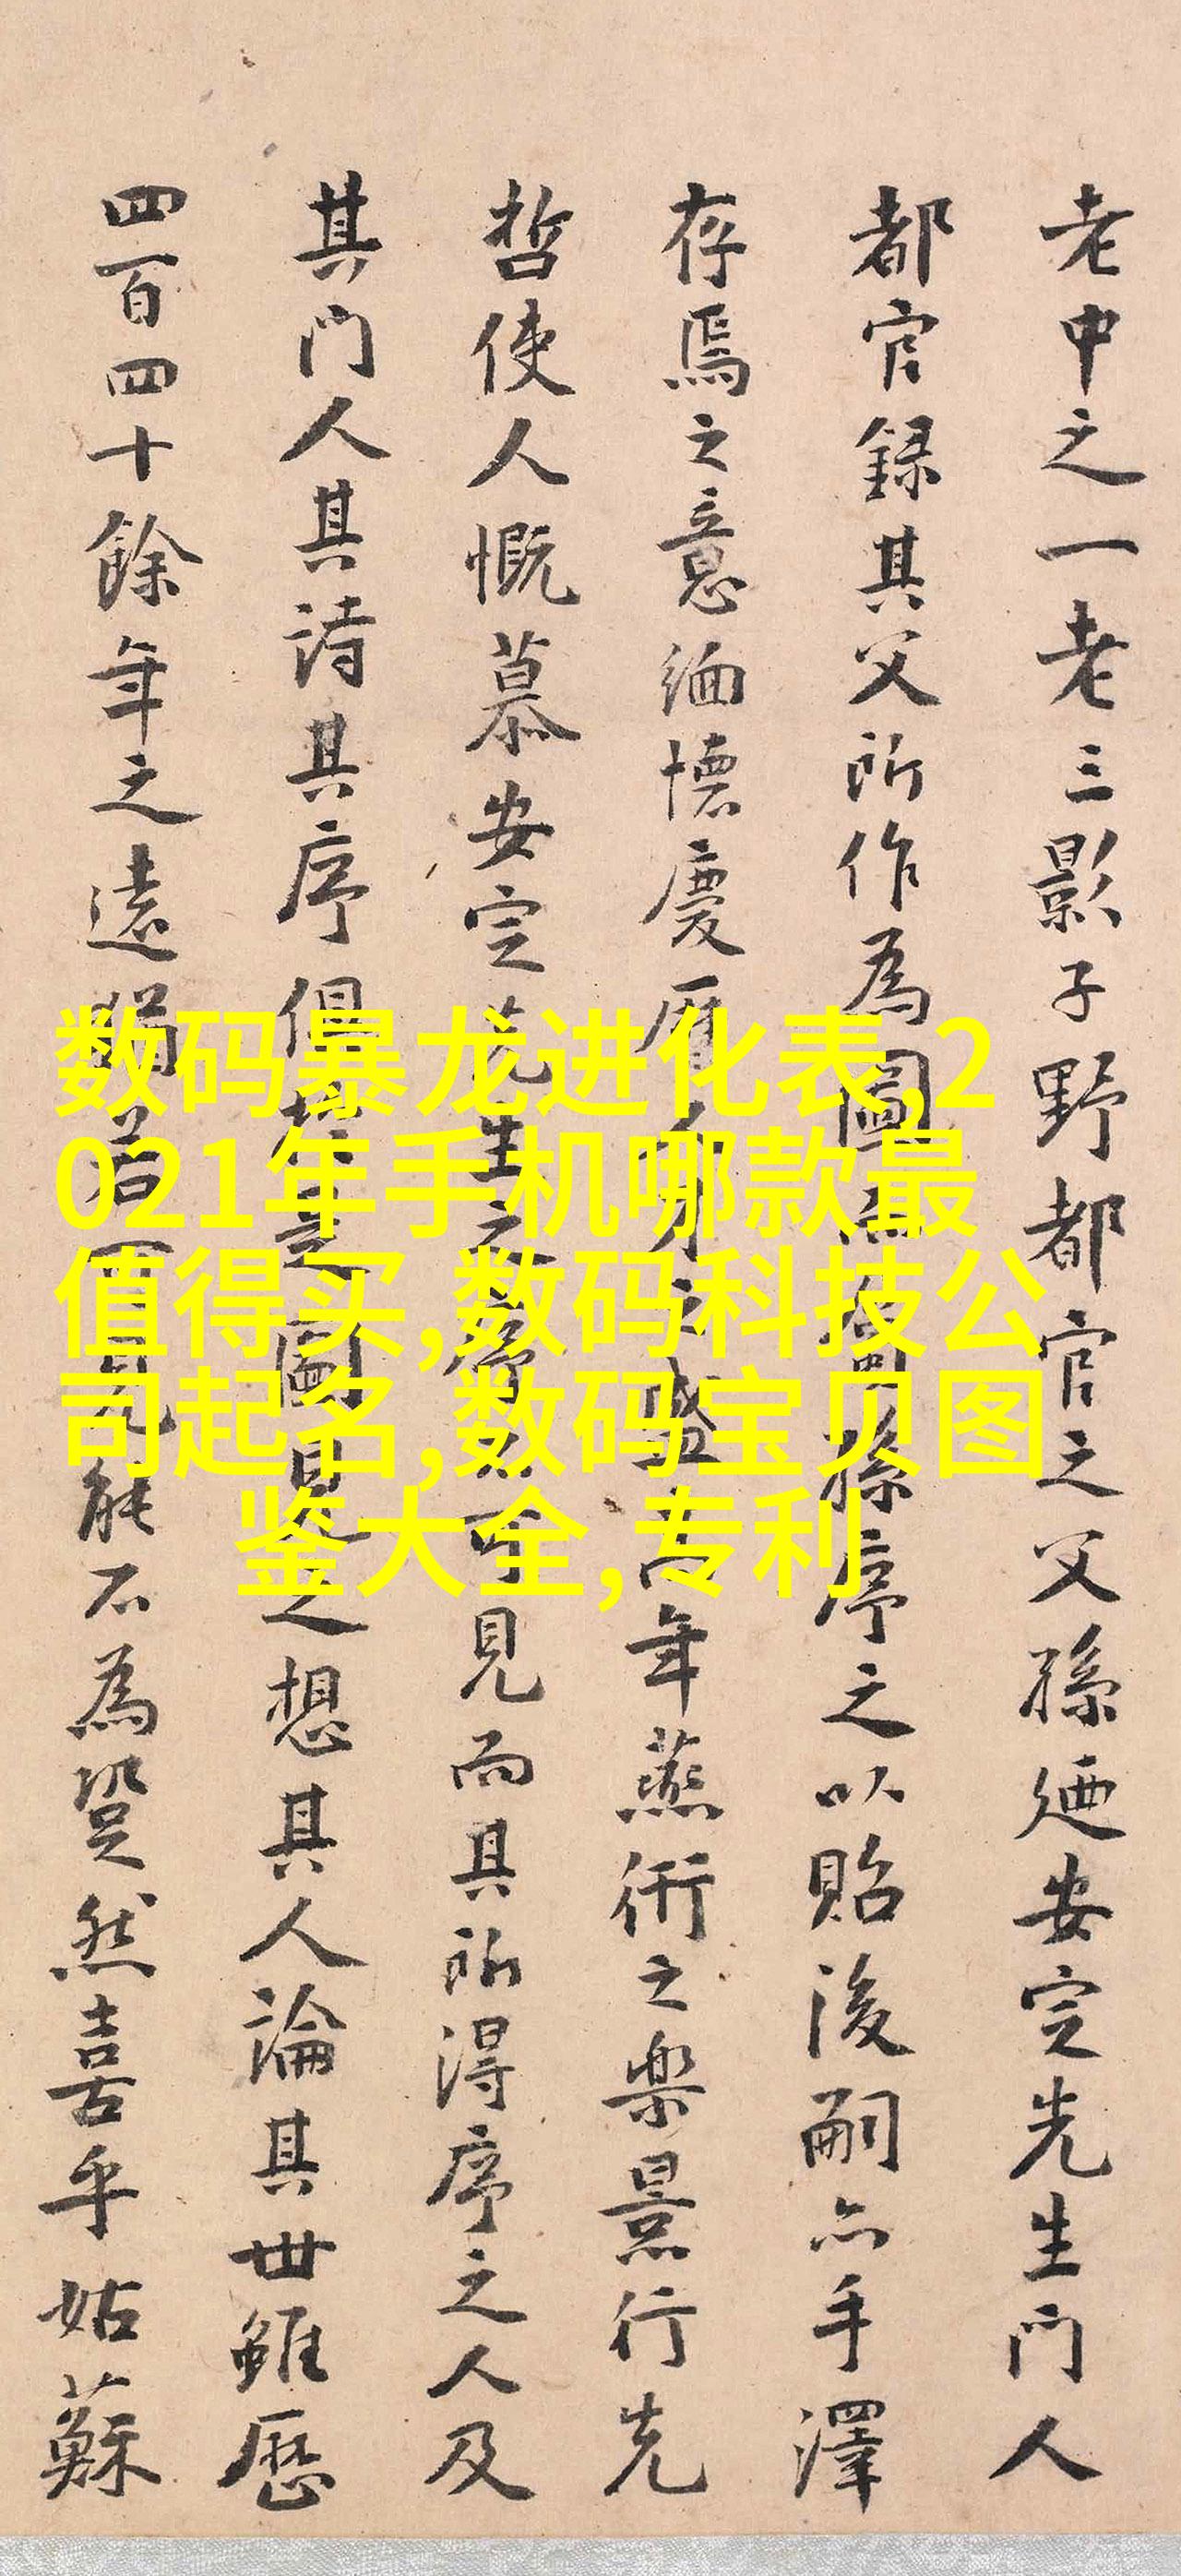 老中之一老三影子野都官之父孫迺安定先生門人
都官録其父所作為圖孫序之以貽後嗣亦手澤
存焉之意緬懷慶曆人才之盛高年燕衎之樂景行先
哲使人慨慕安定先生之可見而其所得序之人及
其門人其詩其序俱圖見之想其人論其世雖歷
四百四十餘年之遠若能不為跫然喜乎姑蘇
数码暴龙进化表,2
021年手机哪款最
值得买,数码科技公
司起名,数码宝贝图
鉴大全,专利